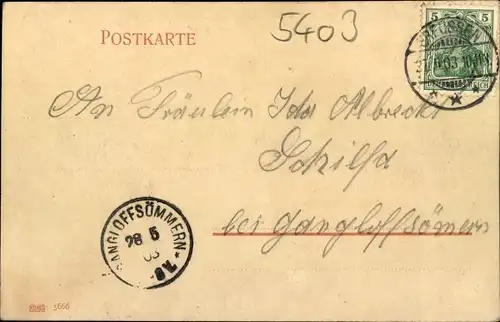 5403
POSTKARTE
5 5
GREUSSEN
An Fräulein Ida Albrecht
Schilfa
bei Gangloffsömern
GANGLOFFSÖMMERN
28 5
03
3666